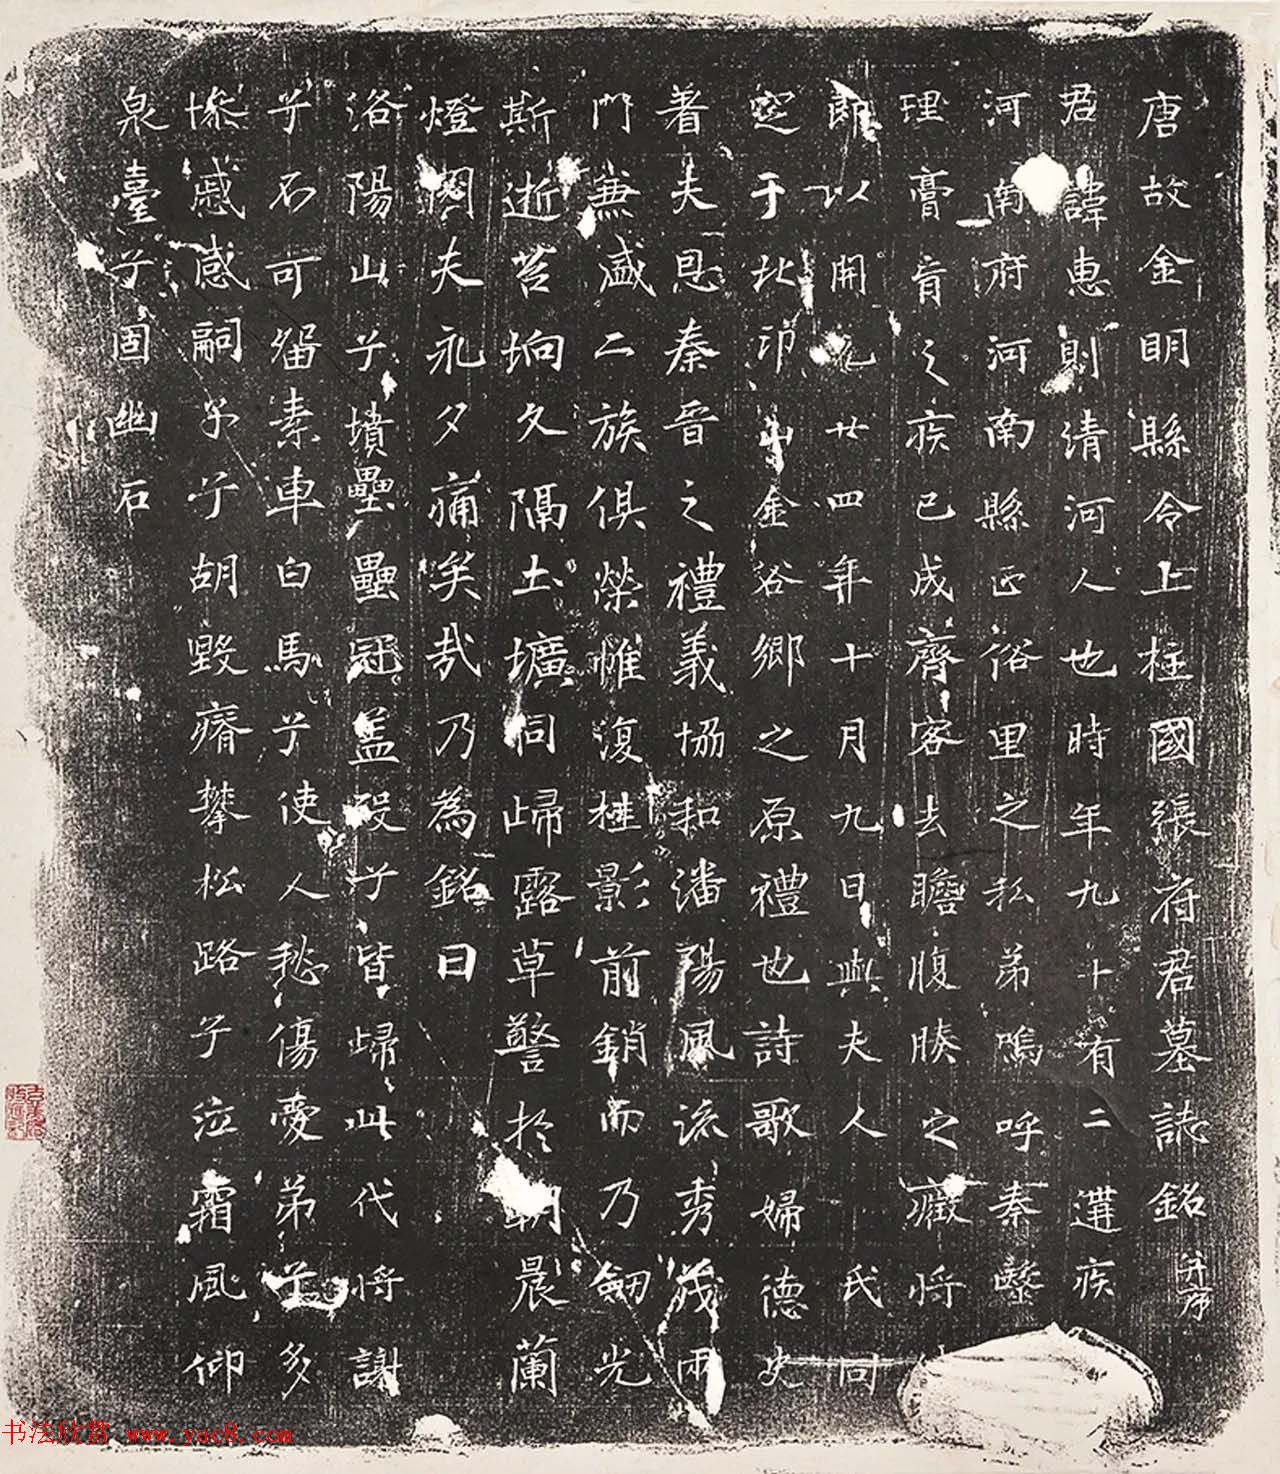 唐故金明縣令上柱國張府君墓誌銘并序
君諱惠則清河人也時年九十有二遘疾
河南府河南縣正俗里之私弟嗚呼秦醫
理膏肓之疾已成齊客去瞻腹腠之癥將
即以開元廿四年十月九日與夫人 氏同
窆于北邙山金谷鄉之原禮也詩歌婦德史
著夫恩秦晉之禮義協和潘陽風流秀茂兩
門兼盛二族俱榮惟復桂影前銷而乃劒光
斯逝苔坰久隔土壙同歸露草警於朝晨蘭
燈罔夫永夕痛矣哉乃為銘曰
洛陽山兮墳壘壘冠盖歿兮皆歸此代將謝
兮石可留素車白馬兮使人愁傷憂弟兮多
慘慼感嗣子兮胡毀瘠攀松路兮泣霜風仰
泉臺兮固幽石
书法欣赏 www.yac8.com